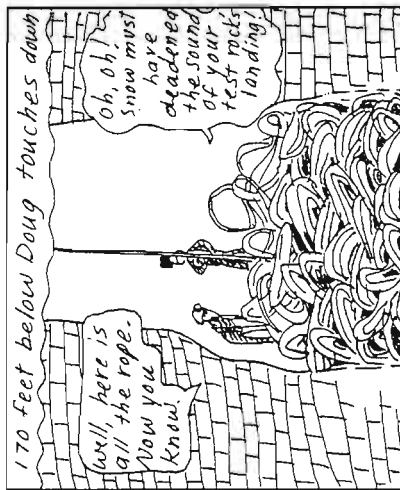 170 feet below Doug touches down
well, here is
all the rope.
Now you
know!
Oh, oh!
Snow must
have
deadened
the sound
of your
test rocks
landing!